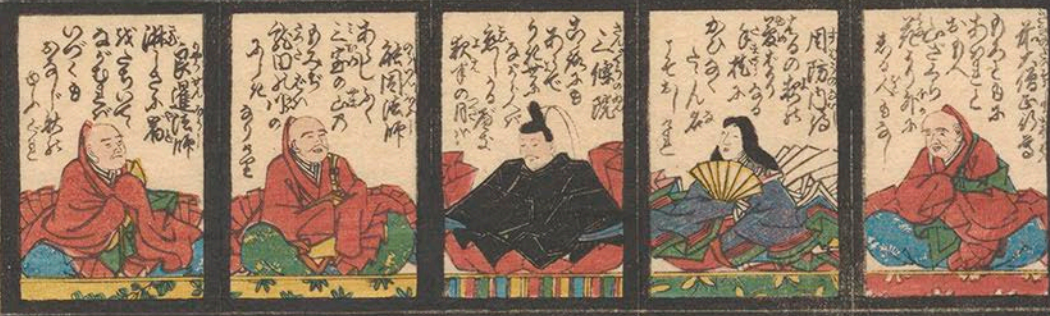 前大僧正行尊
もろともに
あはれと
おもへ
山ざくら
花より外に
しる人もなし
周防内侍
はるの夜の
夢ばかりなる
手枕に
かひなく
たゝん名
こそをしけれ
三條院
こゝろにも
あらで
うき世に
ながらへば
恋しかるべき
夜半の月かな
能因法師
あらしふく
三室の山の
もみぢばは
龍田の川の
にしきなりけり
良暹法師
淋しさに宿
を立いで
ながむれば
いづくも
おなじ秋の
ゆふぐれ